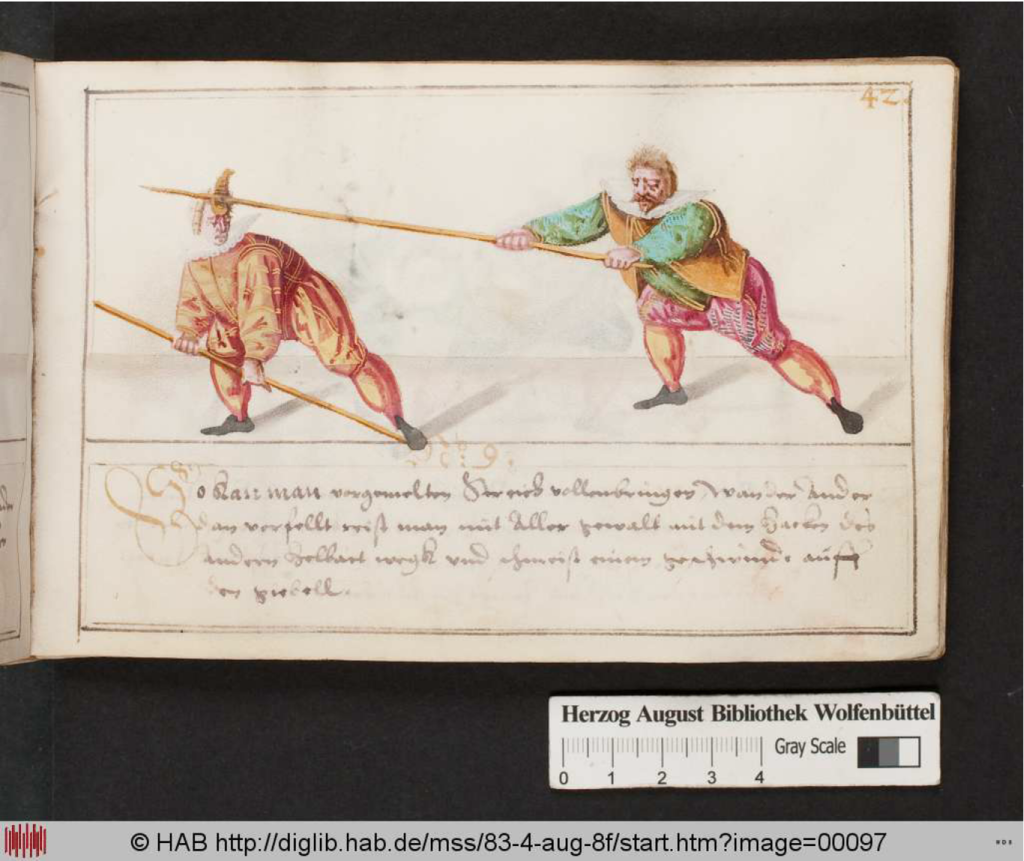 42.
No: 9.
So kan man vorgemelten Streich vollenbringen, wan der Ander
dan verfellt reist man mit Aller gewalt mit dem Hacken des
andern helbart wegk und schmeist einem geschwinde auff
den giebell.
Herzog August Bibliothek Wolfenbüttel
Gray Scale
0 1 2 3 4
© HAB http://diglib.hab.de/mss/83-4-aug-8f/start.htm?image=00097